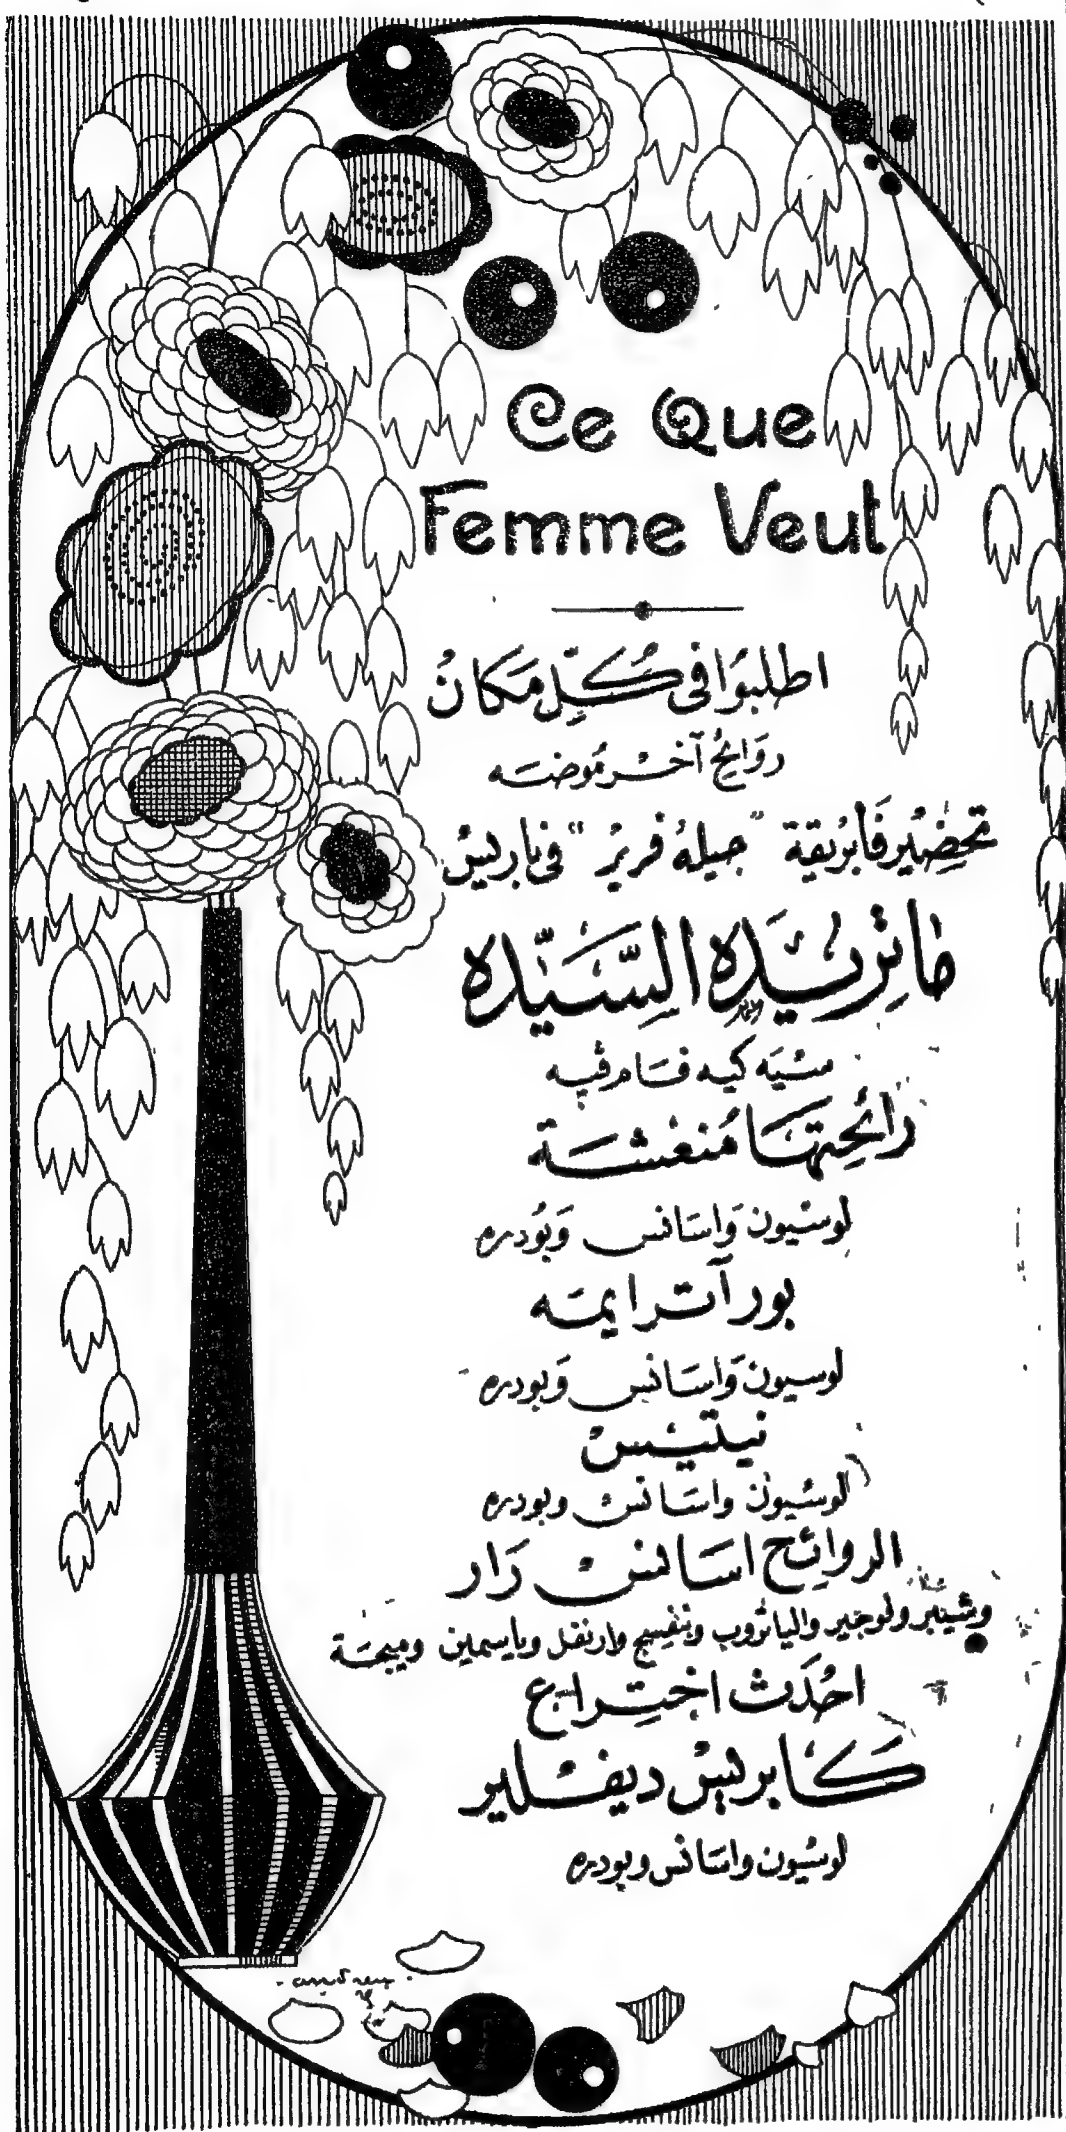 Ce Que
Femme Veut
اطلبوا في كُلِّ مَكانُ
رَوَايحُ آخر مُوضَه
تحضير فَابْريقة "جيله فرير" في باريس
ماتريدَه السَّيّده
رائحِتها مُنعشَة
لوسْيون وَاسَانس وَبُودره
بور آترايمَه
لوسيون وَاسَانس وَبودره
نيتيسْ
لوسْيون واسَانسْ وبودره
الروائح اسَانسْ رَار
وياسمين
احْدَث اختِراع
كَابريسْ ديفلير
لوسْيون واسَانس وبودره